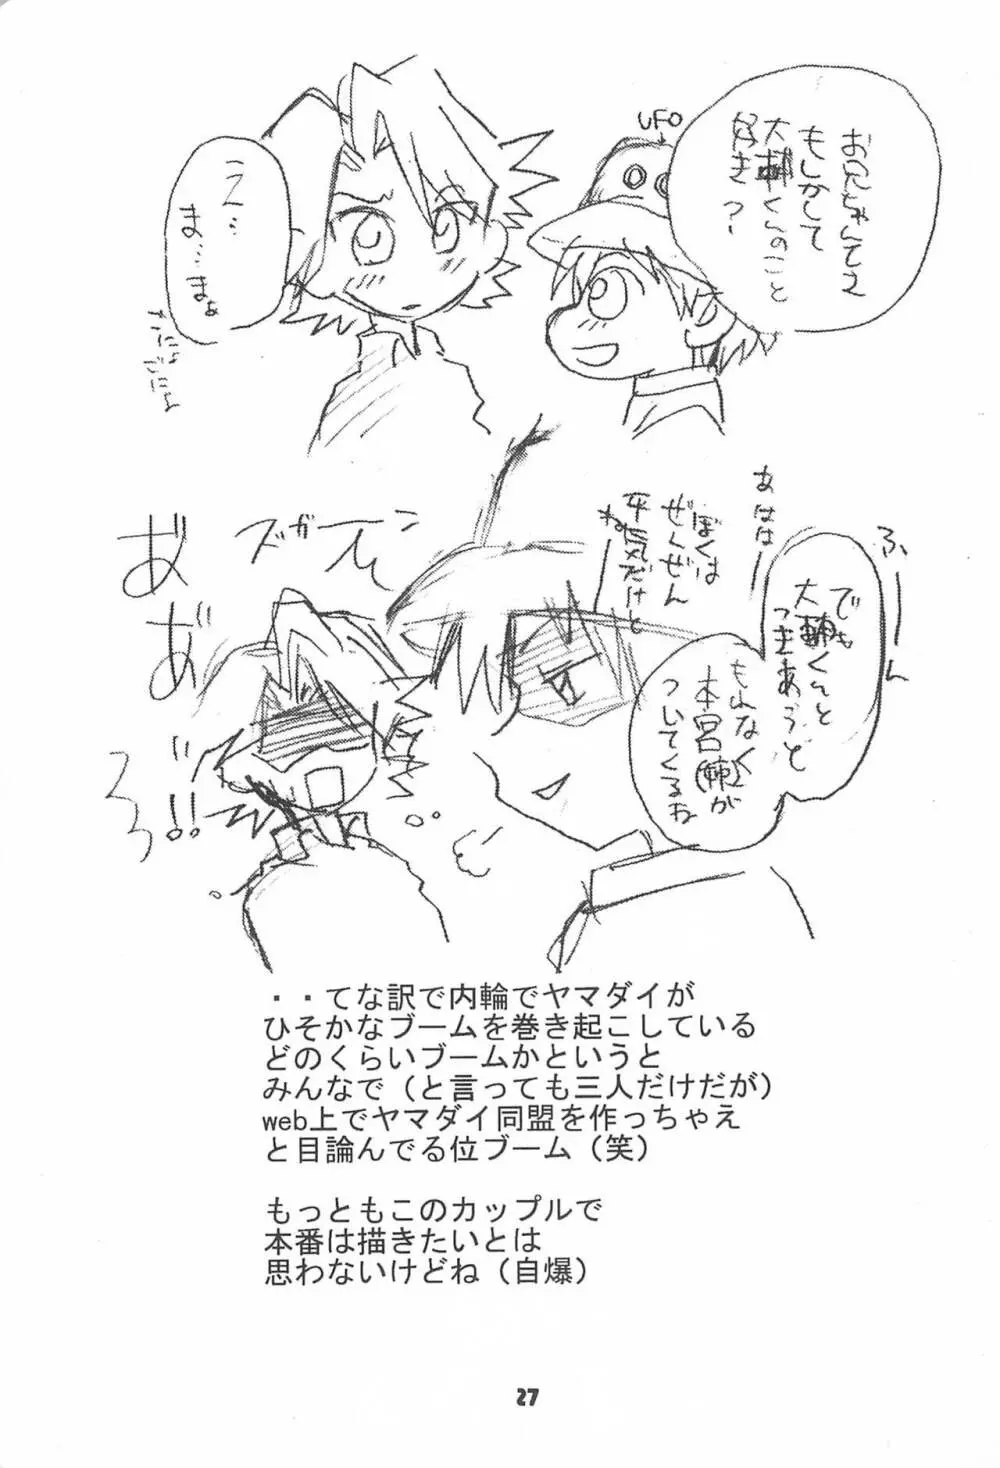 お兄ちゃんてさ
もしかして
大輔くんのこと
好きっ?
UFO
えっ…
ま…まぁ
ごにょ
ふーん
でも
大輔くんと
つきあうと
もれなく
本宮(姉)が
ついてくるね
あはは
ぼくは
ぜんぜん
平気だけど
ね
ズガーン
があ
があ
!!
・・てな訳で内輪でヤマダイが
ひそかなブームを巻き起こしている
どのくらいブームかというと
みんなで（と言っても三人だけだが）
web上でヤマダイ同盟を作っちゃえ
と目論んでる位ブーム（笑）
もっともこのカップルで
本番は描きたいとは
思わないけどね（自爆）
27